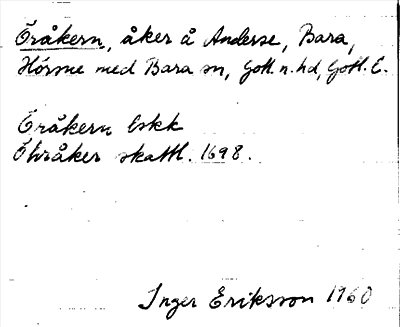 Öråkern, åker å Anderse, Bara,
Hörsne med Bara sn, Gotl. n. hd, Gotl. l.
Öråkern Eskk
Öhråker skattl. 1698.
Inger Eriksson 1960